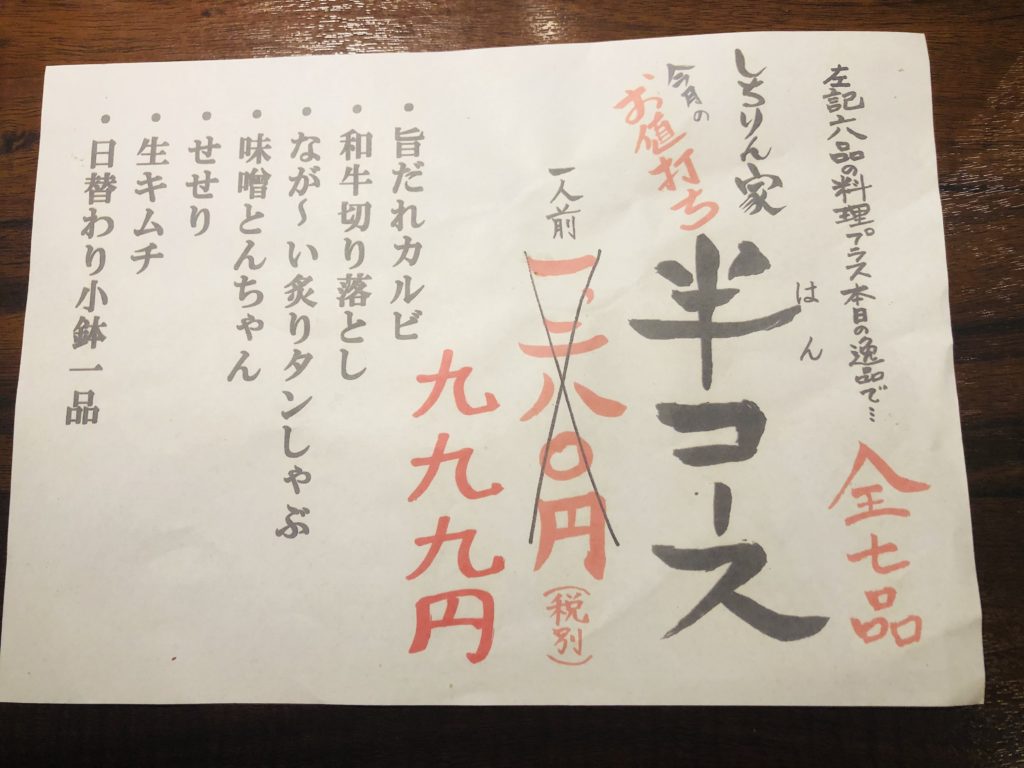 左記六品の料理プラス本日の逸品で…
全七品
しちりん家
半コース
はん
今月の
お値打ち
一人前
一、二八〇円
(税別)
九九九円
・旨だれカルビ
・和牛切り落とし
・なが～い炙りタンしゃぶ
・味噌とんちゃん
・せせり
・生キムチ
・日替わり小鉢一品